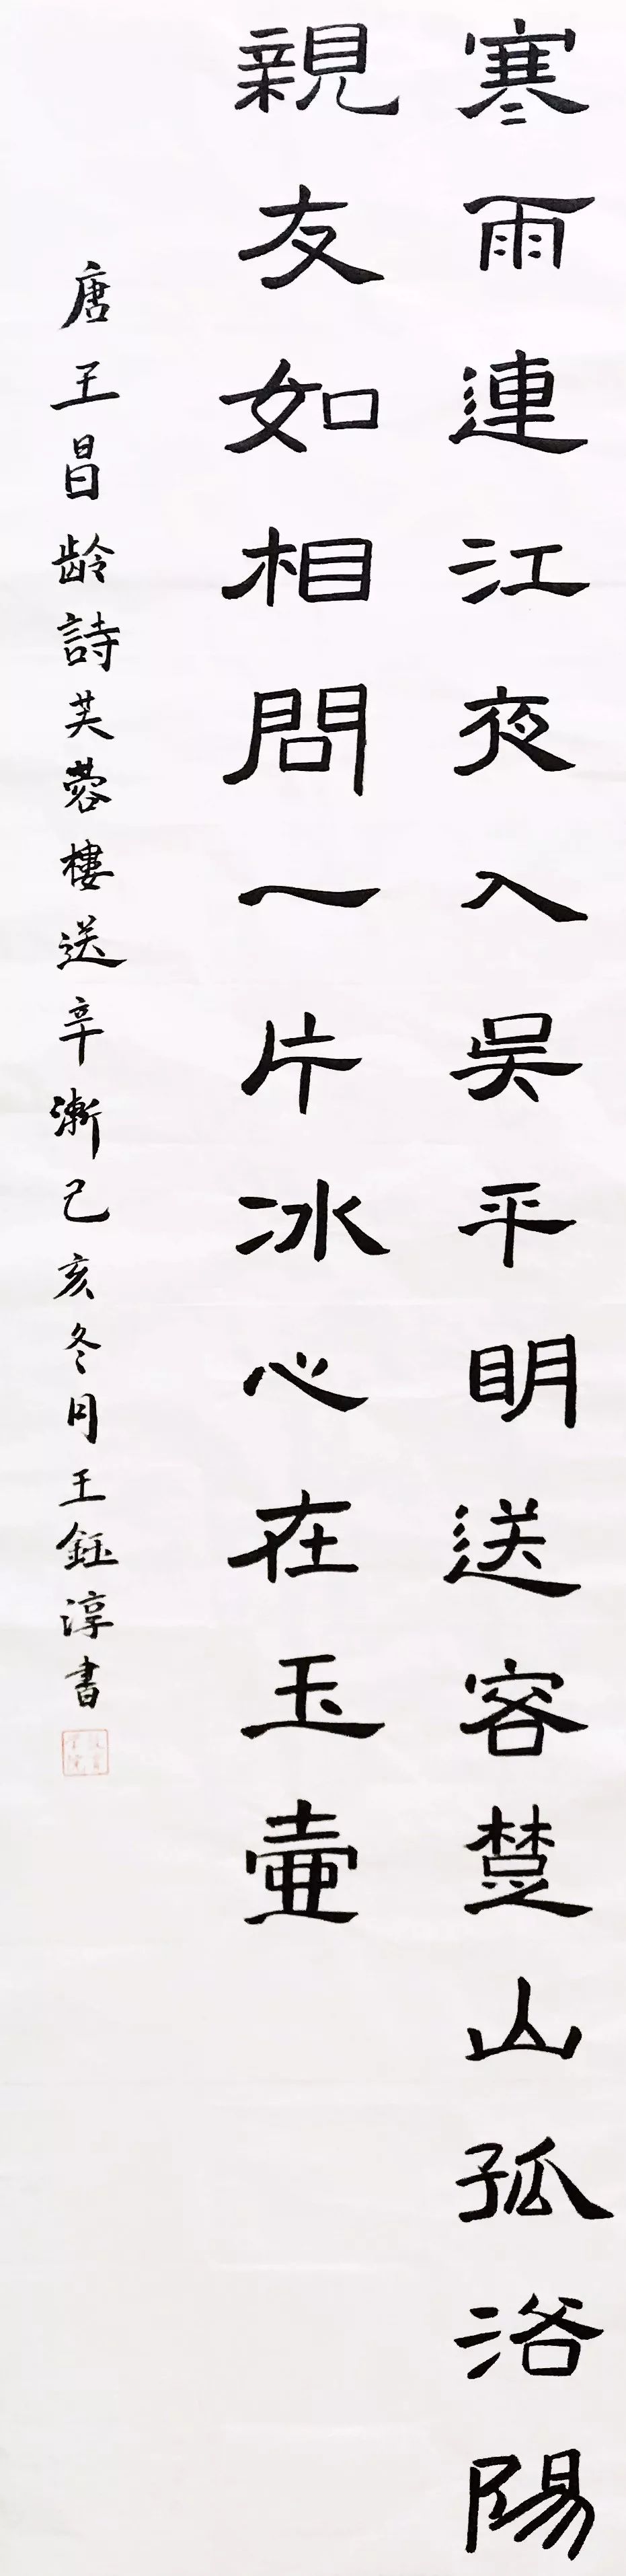 寒雨連江夜入吴平明送客楚山孤洛陽
親友如相問一片冰心在玉壷
唐王昌龄詩芙蓉樓送辛漸己亥冬月王鈺淳書